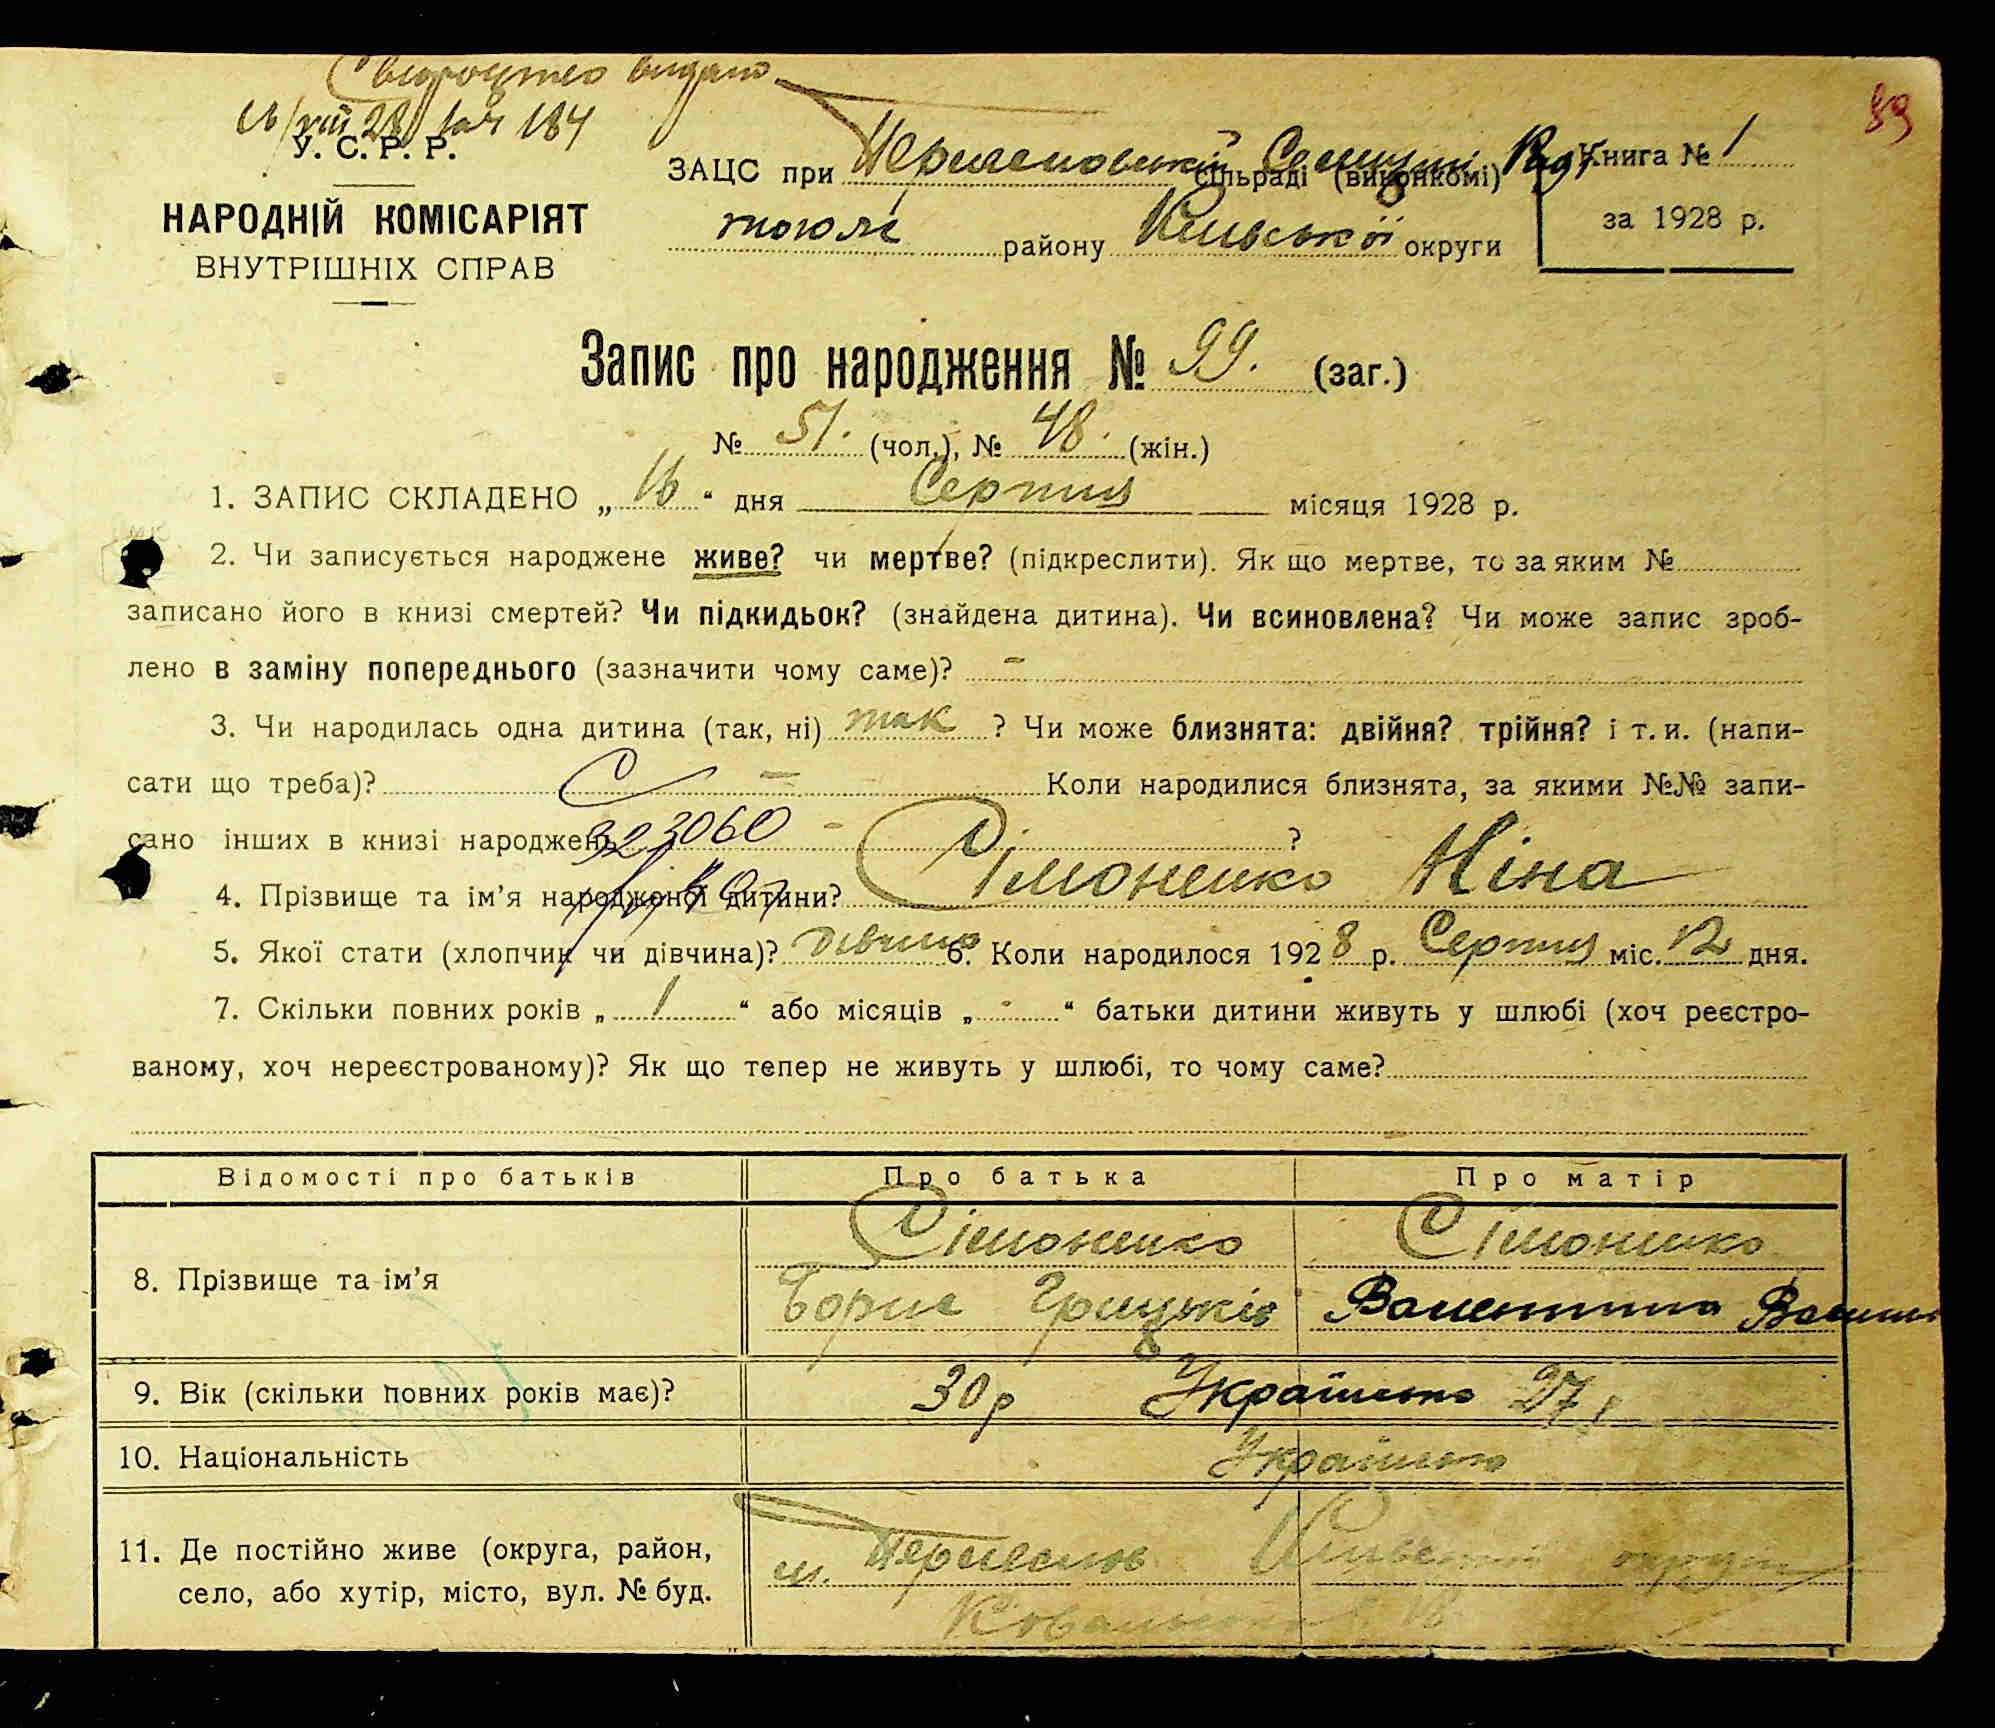 Свідоцтво видано
16/VIII 28 184
89
У. С. Р. Р.
НАРОДНІЙ КОМІСАРІЯТ
ВНУТРІШНІХ СПРАВ
ЗАЦС при сільраді (виконкомі)
району Київської округи
Книга № 1
за 1928 р.
Запис про народження № 99. (заг.)
№ 51. (чол.), № 48. (жін.)
1. ЗАПИС СКЛАДЕНО „ 16 “ дня Серпня місяця 1928 р.
2. Чи записується народжене живе? чи мертве? (підкреслити). Як що мертве, то за яким №
записано його в книзі смертей? Чи підкидьок? (знайдена дитина). Чи всиновлена? Чи може запис зроб-
лено в заміну попереднього (зазначити чому саме)? -
3. Чи народилась одна дитина (так, ні) так ? Чи може близнята: двійня? трійня? і т. и. (напи-
сати що треба)? - Коли народилися близнята, за якими №№ запи-
сано інших в книзі народжень - ?
323060
4. Прізвище та ім’я народженої дитини? Сімоненко Ніна
5. Якої стати (хлопчик чи дівчина)? дівчина 6. Коли народилося 1928 р. Серпня міс. 12 дня.
7. Скільки повних років „ 1 “ або місяців „ - “ батьки дитини живуть у шлюбі (хоч реєстро-
ваному, хоч нереєстрованому)? Як що тепер не живуть у шлюбі, то чому саме?
Відомості про батьків Про батька Про матір
8. Прізвище та ім’я Сімоненко Сімоненко
Борис Грицьків Валентина
9. Вік (скільки повних років має)? 30 р Українська 27 р
10. Національність Українська
11. Де постійно живе (округа, район,
село, або хутір, місто, вул. № буд.
м. Переяслов Київської округи